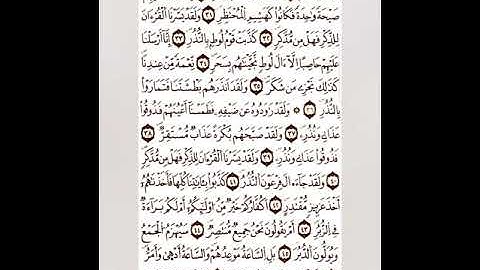 صَيْحَةً وَٰحِدَةً فَكَانُوا۟ كَهَشِيمِ ٱلْمُحْتَظِرِ ٣١ وَلَقَدْ يَسَّرْنَا ٱلْقُرْءَانَ
لِلذِّكْرِ فَهَلْ مِن مُّدَّكِرٍ ٣٢ كَذَّبَتْ قَوْمُ لُوطٍ بِالنُّذُرِ ٣٣ إِنَّا أَرْسَلْنَا
عَلَيْهِمْ حَاصِبًا إِلَّا ءَالَ لُوطٍ نَّجَّيْنَٰهُم بِسَحَرٍ ٣٤ نِّعْمَةً مِّنْ عِندِنَا
كَذَٰلِكَ نَجْزِى مَن شَكَرَ ٣٥ وَلَقَدْ أَنذَرَهُم بَطْشَتَنَا فَتَمَارَوْا۟
بِالنُّذُرِ ٣٦ ۞ وَلَقَدْ رَٰوَدُوهُ عَن ضَيْفِهِ فَطَمَسْنَا أَعْيُنَهُمْ فَذُوقُوا۟
عَذَابِى وَنُذُرِ ٣٧ وَلَقَدْ صَبَّحَهُم بُكْرَةً عَذَابٌ مُّسْتَقِرٌّ ٣٨
فَذُوقُوا۟ عَذَابِى وَنُذُرِ ٣٩ وَلَقَدْ يَسَّرْنَا ٱلْقُرْءَانَ لِلذِّكْرِ فَهَلْ مِن مُّدَّكِرٍ
٤٠ وَلَقَدْ جَآءَ ءَالَ فِرْعَوْنَ ٱلنُّذُرُ ٤١ كَذَّبُوا۟ بِـَٔايَٰتِنَا كُلِّهَا فَأَخَذْنَٰهُمُۥ
أَخْذَ عَزِيزٍ مُّقْتَدِرٍ ٤٢ أَكُفَّارُكُمْ خَيْرٌ مِّنْ أُو۟لَٰٓئِكُمُۥ أَمْ لَكُم بَرَآءَةٌ
فِى ٱلزُّبُرِ ٤٣ أَمْ يَقُولُونَ نَحْنُ جَمِيعٌ مُّنتَصِرٌ ٤٤ سَيُهْزَمُ ٱلْجَمْعُ
وَيُوَلُّونَ ٱلدُّبُرَ ٤٥ بَلِ ٱلسَّاعَةُ مَوْعِدُهُمْ وَٱلسَّاعَةُ أَدْهَىٰ وَأَمَرُّ